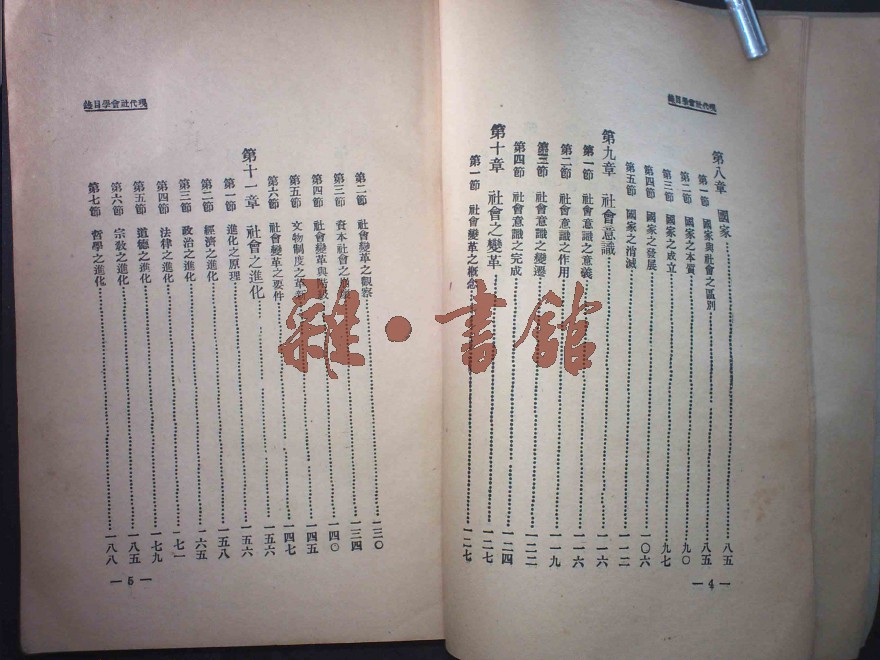 現代社會學目錄
第八章 國家……八五
第一節 國家與社會之區別……八五
第二節 國家之本質……九〇
第三節 國家之成立……九七
第四節 國家之發展……一〇六
第五節 國家之消滅……一一二
第九章 社會意識……一一六
第一節 社會意識之意義……一一六
第二節 社會意識之作用……一一九
第三節 社會意識之變遷……一二二
第四節 社會意識之完成……一二四
第十章 社會之變革……一二七
第一節 社會變革之概念……一二七
— 4 —
現代社會學目錄
第二節 社會變革之觀察……一三〇
第三節 資本社會之……一三四
第四節 社會變革與階級……一四〇
第五節 文物制度之革新……一四五
第六節 社會變革之要件……一四七
第十一章 社會之進化……一五六
第一節 進化之原理……一五六
第二節 經濟之進化……一五八
第三節 政治之進化……一六五
第四節 法律之進化……一七一
第五節 道德之進化……一七九
第六節 宗教之進化……一八五
第七節 哲學之進化……一八八
— 5 —
雜·書館